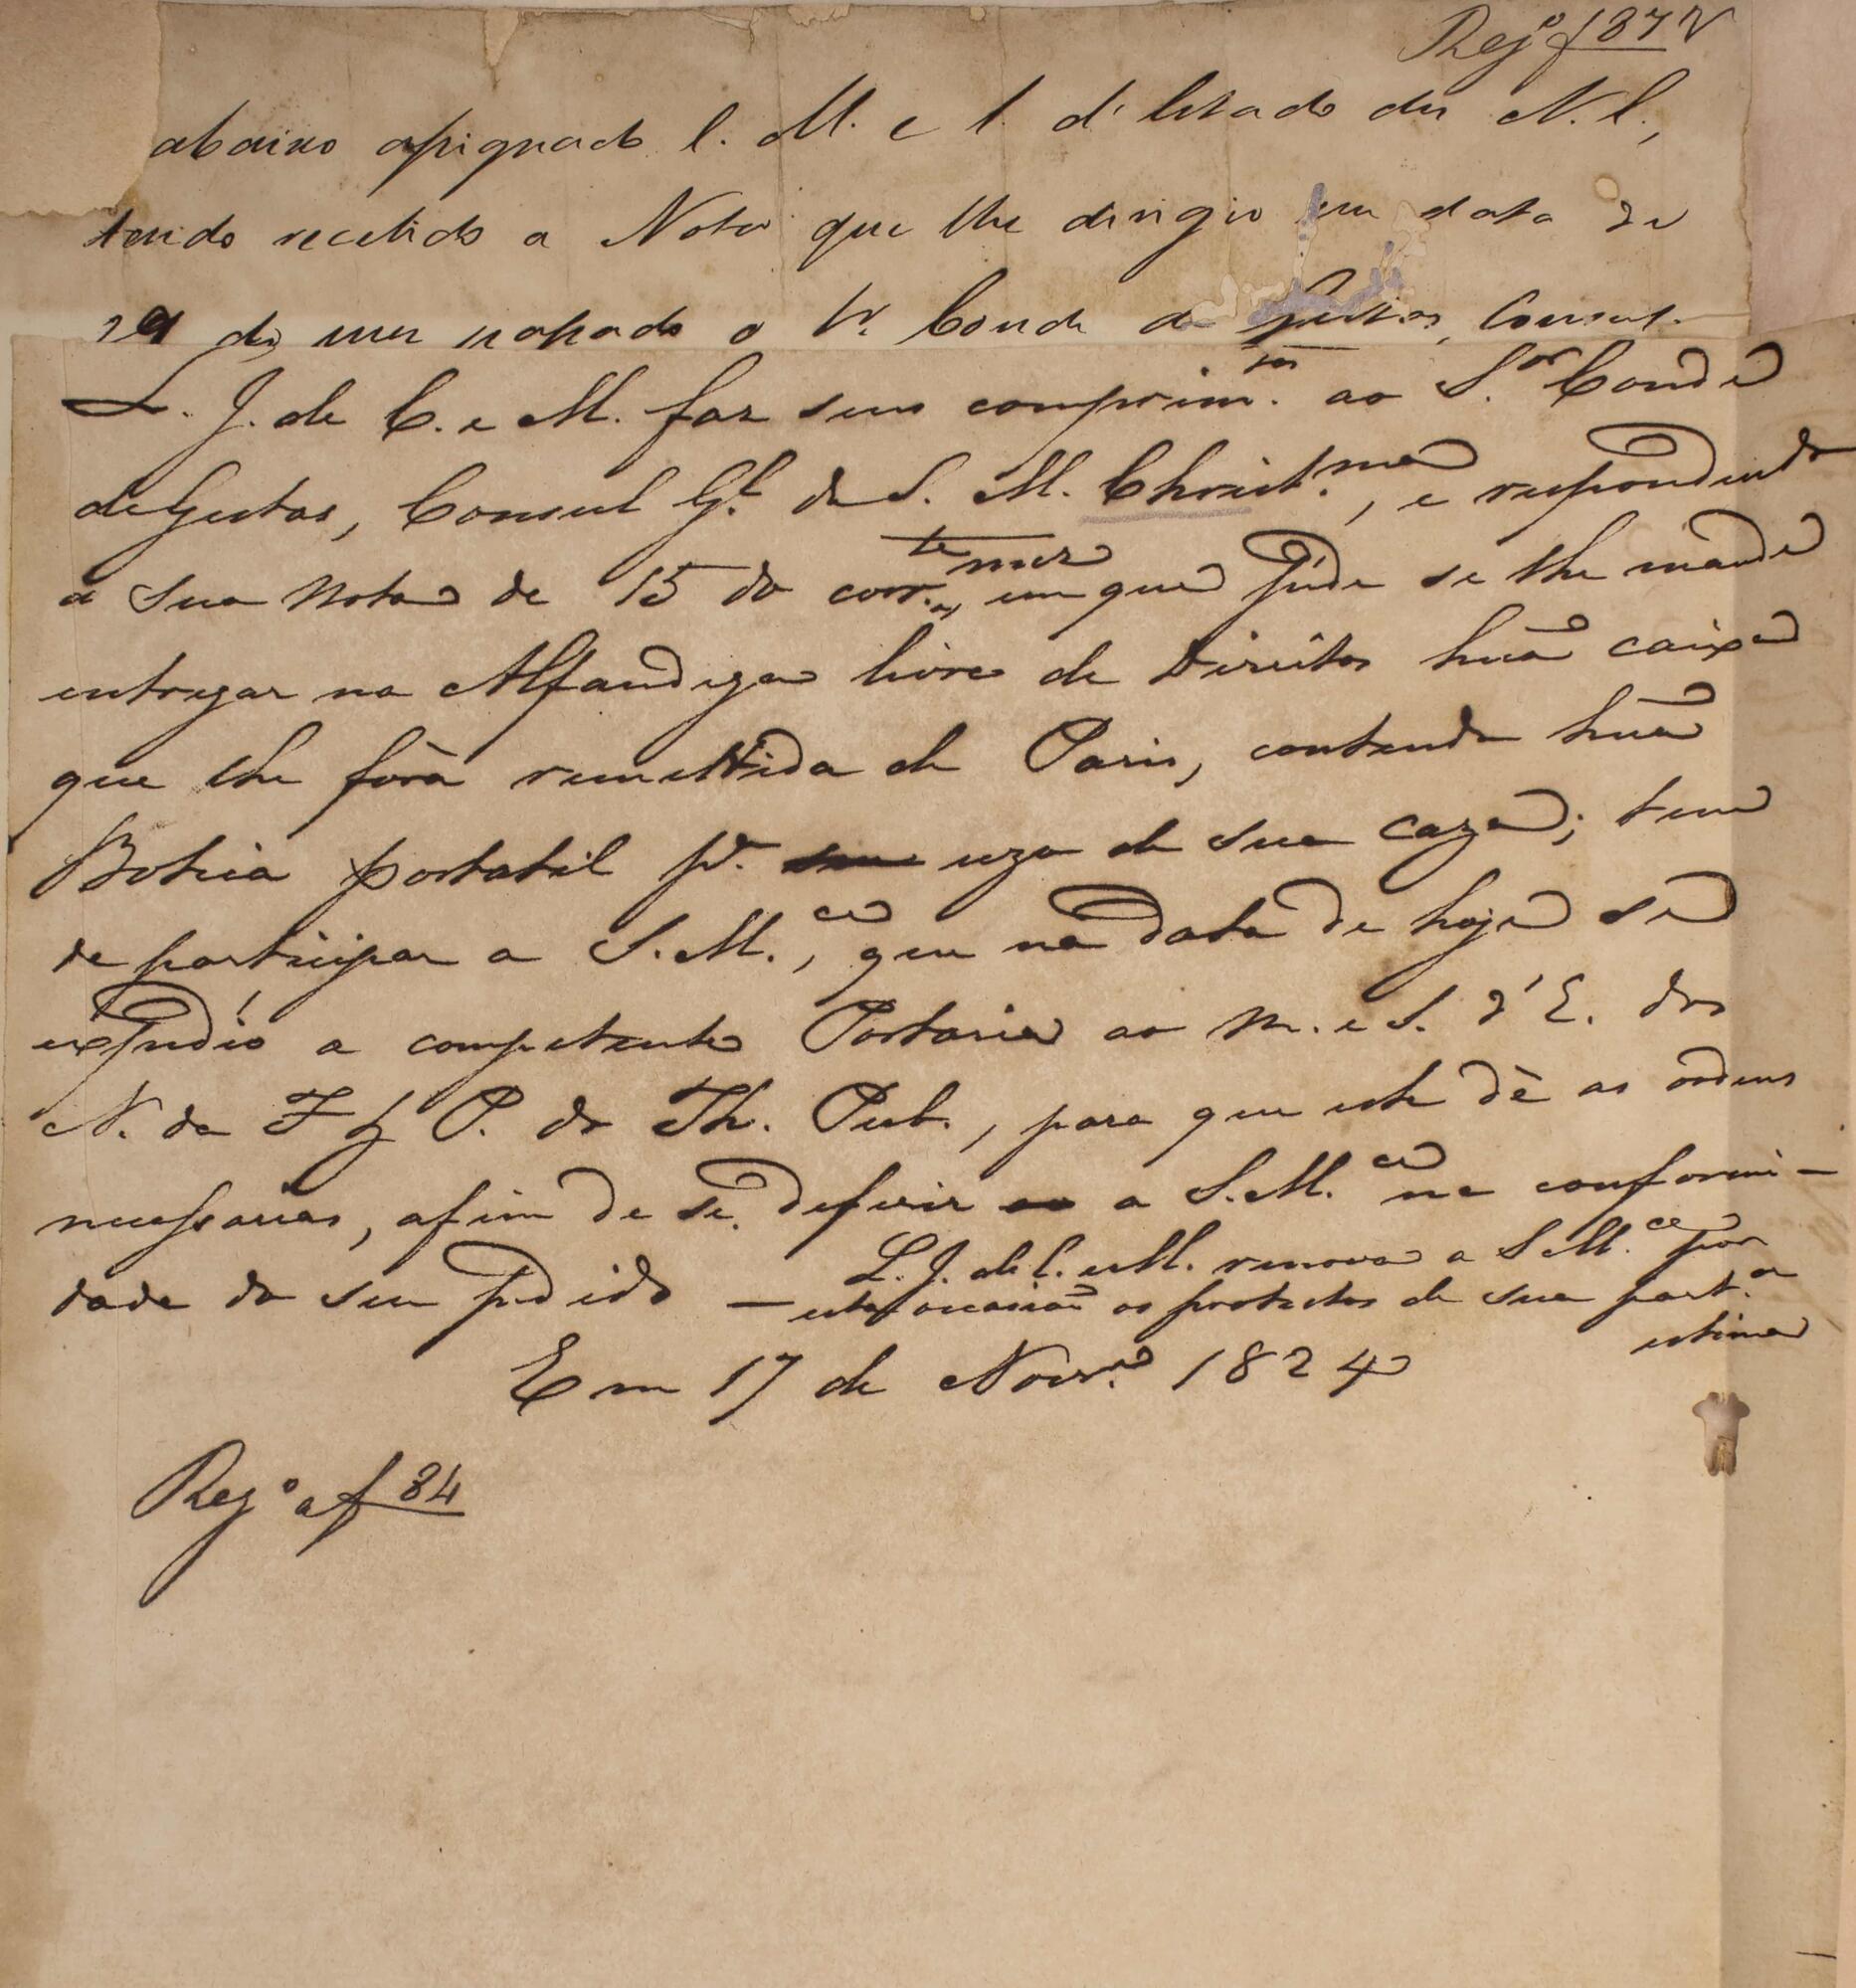 Reg.º f 37 v
abaixo assignado C. M. e S. d'Estado dos N. E.,
tendo recebido a Nota que lhe dirigio em data de
29 do mez passado o Sr. Conde de Gestas, Consul
L. J. de C. e M. faz seus comprim.tos ao S.or Conde
de Gestas, Consul G.l de S. M. Christ.ma, e respondendo
a sua Nota de 15 do corr.te mez, em que péde se lhe mande
entregar na Alfandega livre de Direitos huã caixa
que lhe fôra remettida de Paris, contendo huã
Botica portatil p.a uzo de sua caza; tem
de participar a S. M.ce, que na data de hoje se
expedio a competente Portaria ao M. e S. d'E. dos
N. da F. e P. do Th. Pub., para que este dê as ordens
necessarias, afim de se deferir a S. M.ce na conformi-
dade do seu pedido — L. J. de C. e M. renova a S. M.ce por
esta occasiaõ os protestos de sua part.ar
estima
Em 17 de Novr.o 1824
Reg.º a f 34